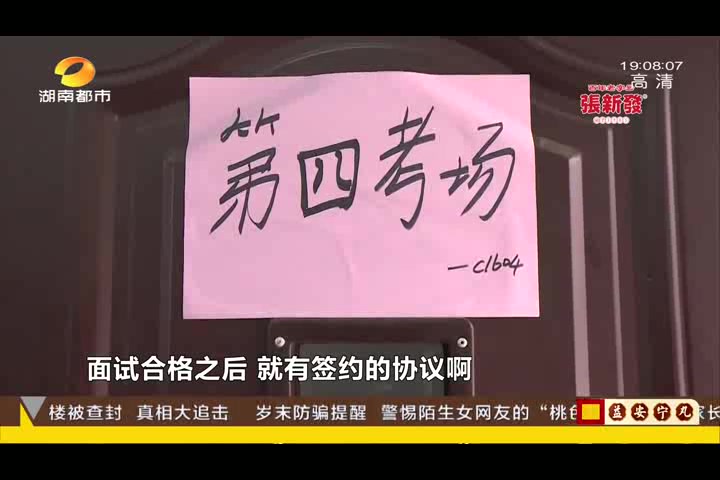 湖南都市
19:08:07
高清
張新發
第四考场
—C1604
面试合格之后 就有签约的协议啊
楼被查封 真相大追击 岁末防骗提醒 警惕陌生女网友的“桃色
益安宁丸
家长